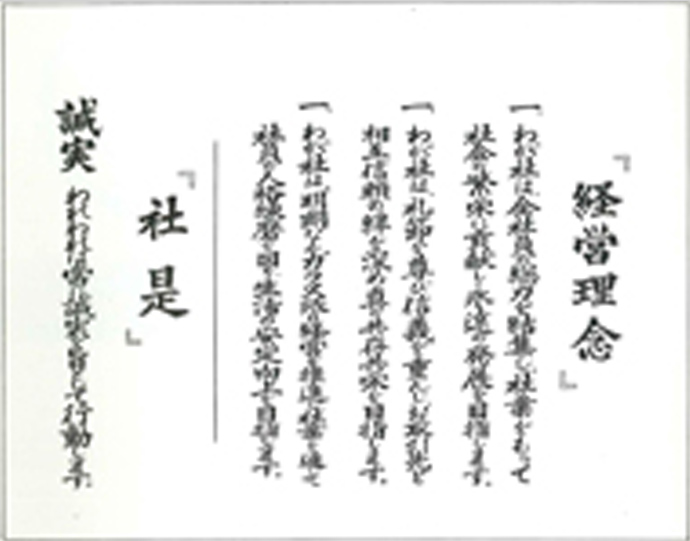 『経営理念』
一 わが社は、全社員の総力を結集し、社業をもって
社会の繁栄に貢献し、永遠の発展を目指します。
一 わが社は、礼節を尊び、信義を重んじ、お取引先と
相互信頼の絆を深め、共存共栄を目指します。
一 わが社は、
社員の人格 生活の安定向上を目指します。
『社是』
誠実 われわれは常に誠実を旨として行動します。